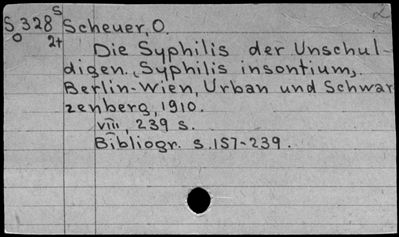 2
S 328 s Scheuer, O.
O 2+
Die Syphilis der Unschul-
digen (Syphilis insontium).
Berlin-Wien, Urban und Schwar
zenberg, 1910.
VIII, 239 s.
Bibliogr. s. 157-239.